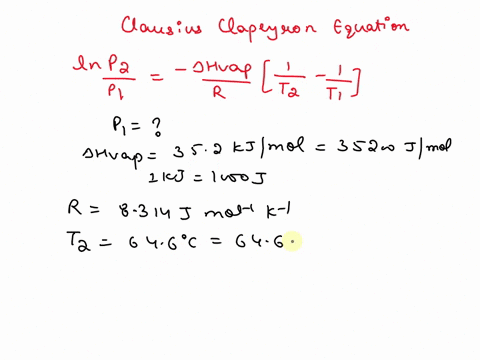 Clausius Clapeyron Equation
ln P2/P1 = -ΔHvap/R [1/T2 - 1/T1]
P1 = ?
ΔHvap = 35.2 kJ/mol = 35200 J/mol
1kJ = 1000J
R = 8.314 J mol-1 K-1
T2 = 64.6°C = 64.6